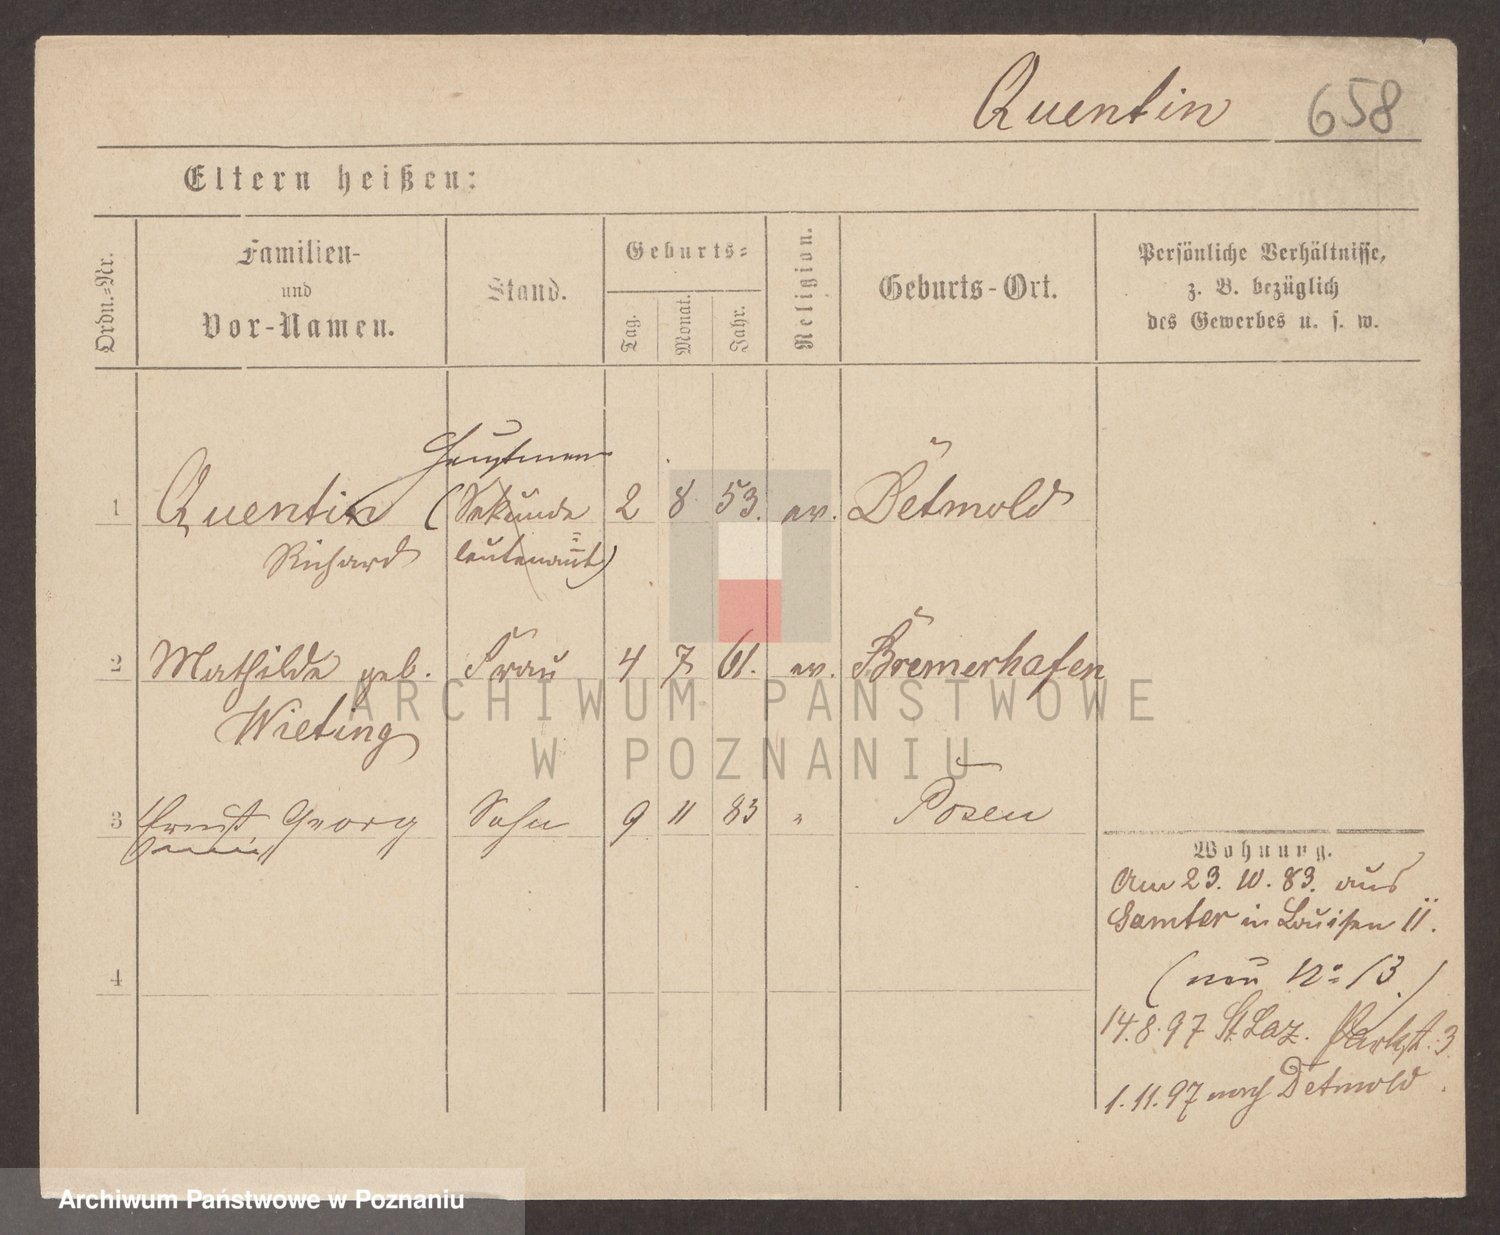 Quentin 658
Eltern heißen:
Ordn.-Nr.
Familien-
und
Vor-Namen.
Stand.
Geburts-
Tag.
Monat.
Jahr.
Religion.
Geburts-Ort.
Persönliche Verhältnisse,
z. B. bezüglich
des Gewerbes u. s. w.
Hauptmann
1 Quentin (Sekunde 2 8 53. ev. Detmold
Richard leutenant)
2 Mathilde geb. Frau 4 7 61. ev. Bremerhafen
Wieting
ARCHIWUM PAŃSTWOWE
W POZNANIU
3 Ernst Georg Sohn 9 11 83 " Posen
Wohnung.
Am 23. 10. 83. aus
Samter in Louisen 11.
(neu No 13.)
4
14.8.97 St. Laz. Parkst. 3
1.11.97 nach Detmold
Archiwum Państwowe w Poznaniu